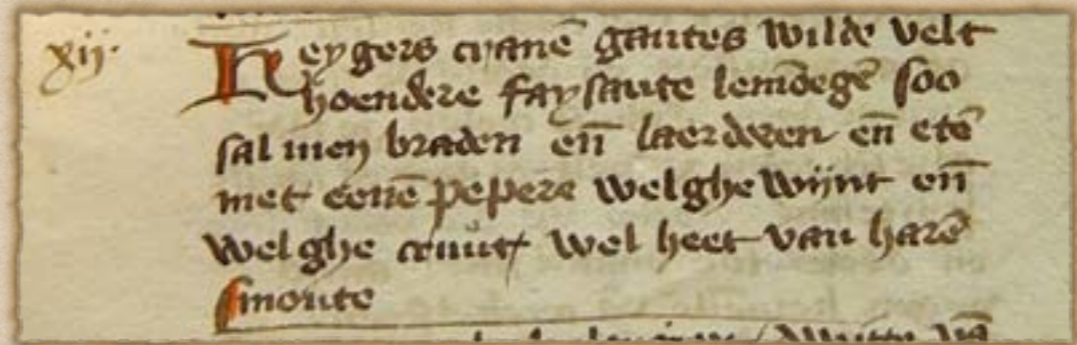 xij·
Heygers cranē gantes wilde velt
hoendere faysante lemoegē soo
sal men braden eñ laerderen eñ etē
met eenē pepere welghewijnt eñ
welghe cruut wel heet van harē
smoute